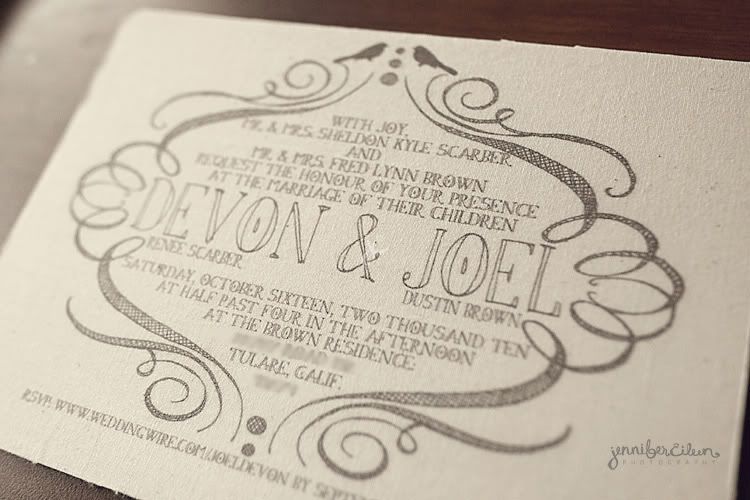 WITH JOY,
MR. & MRS. SHELDON KYLE SCARBER
AND
MR. & MRS. FRED LYNN BROWN
REQUEST THE HONOUR OF YOUR PRESENCE
AT THE MARRIAGE OF THEIR CHILDREN
DEVON & JOEL
RENEE SCARBER
DUSTIN BROWN
SATURDAY, OCTOBER SIXTEEN, TWO THOUSAND TEN
AT HALF PAST FOUR IN THE AFTERNOON
AT THE BROWN RESIDENCE:
TULARE, CALIF.
RSVP: WWW.WEDDINGWIRE.COM/JOELDEVON BY
jenniferEileen
PHOTOGRAPHY